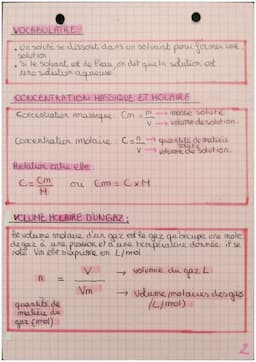 VOCABULAIRE
• Un soluté se dissout dans un solvant pour former une
solution
• Si le solvant est de l'eau, on dit que la solution est
une solution aqueuse.
CONCENTRATION MASSIQUE ET MOLAIRE
Concentration massique Cm = m/V → masse soluté → volume de solution.
Concentration molaire C = n/V → quantité de matière soluté → volume de solution.
Relation entre elle
C = Cm/M ou Cm = C × M
VOLUME MOLAIRE D'UN GAZ :
Le volume molaire d'un gaz est le gaz qu'occupe une mole
de gaz à une pression et à une température donnée. il se
note Vm et s'exprime en L/mol
n = V/Vm → volume du gaz L → Volume molaires des gaz (L/mol)
quantité de
matière du
gaz (mol)
2